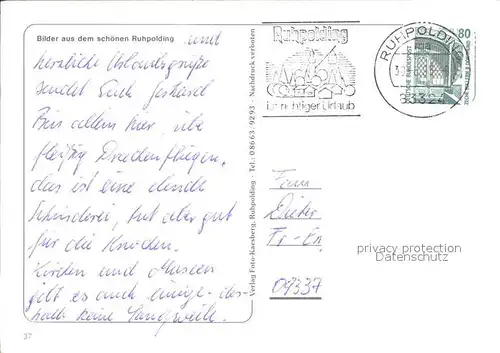 Bilder aus dem schönen Ruhpolding und
herzliche Urlaubsgrüße
sendet Euch
Bin allein hier, übe
fleißig Drachenfliegen,
das ist eine
Schinderei, tut aber gut
für die Knochen.
Kirchen und Museen
gibt es auch einige - des-
halb keine Langweile.
37
Verlag Foto-Kaesberg, Ruhpolding - Tel.: 08663-9293 - Nachdruck verboten
Ruhpolding
Ein richtiger Urlaub
RUHPOLDING
83324
DEUTSCHE BUNDESPOST
80
Fam
Dieter
09337
privacy protection
Datenschutz